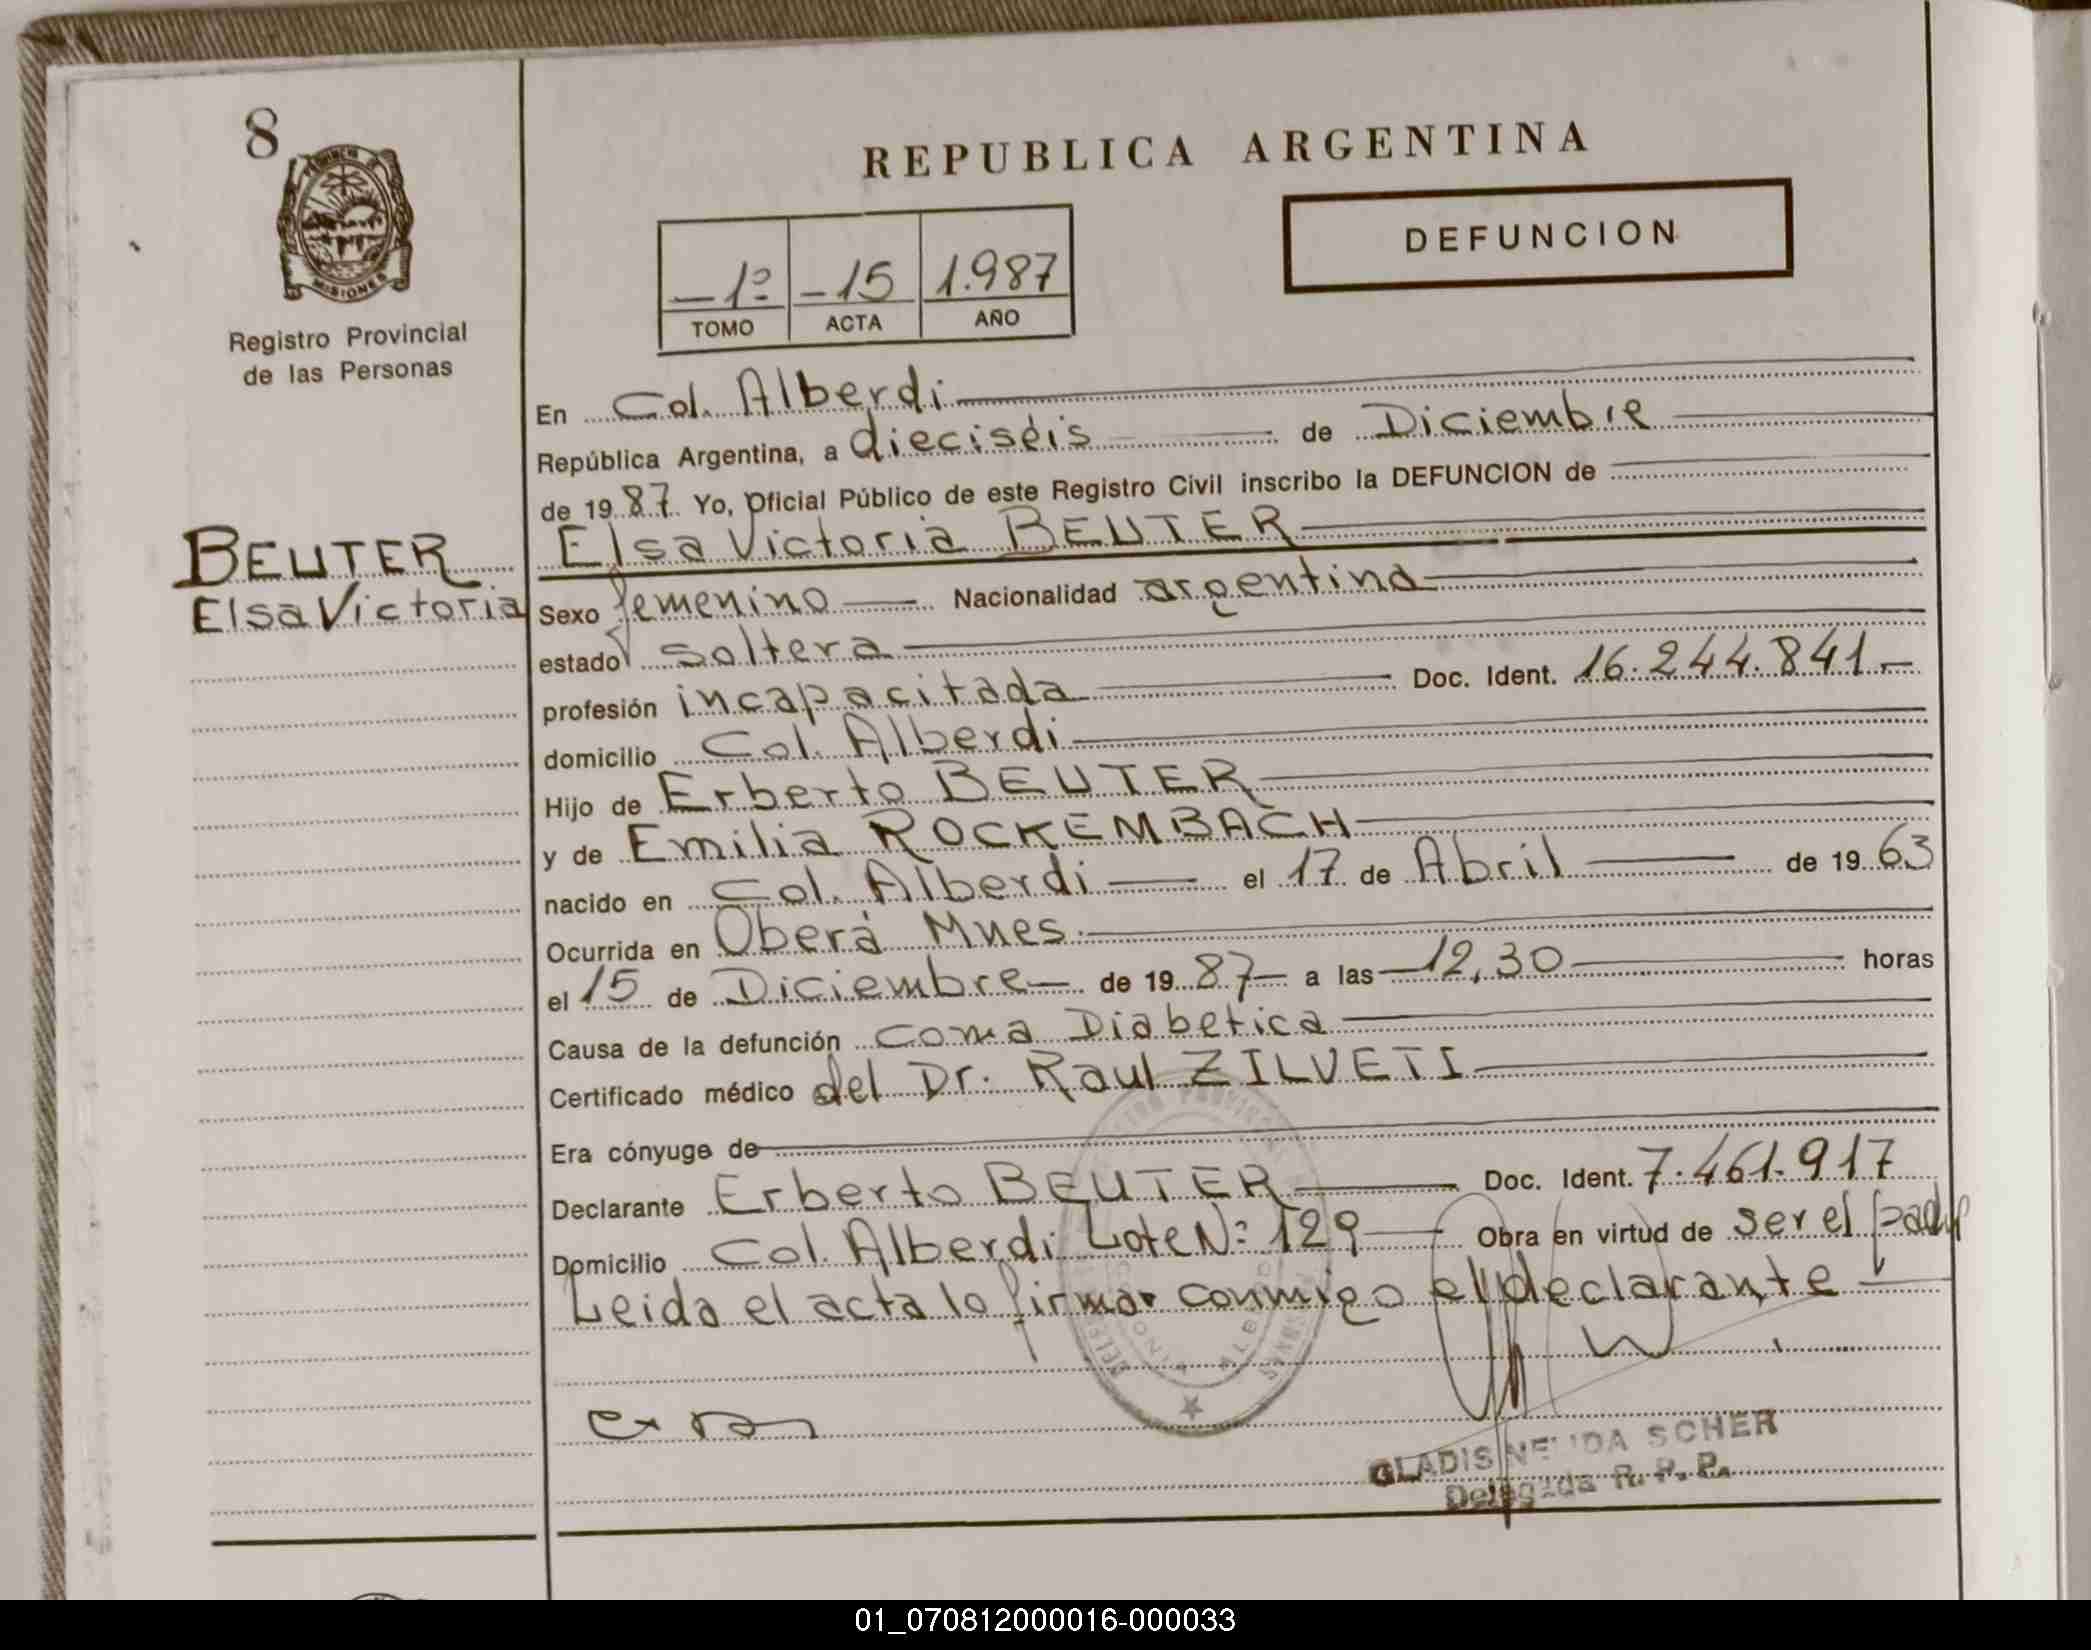 8
PROVINCIA DE
MISIONES
Registro Provincial
de las Personas
REPUBLICA ARGENTINA
DEFUNCION
1º 15 1.987
TOMO ACTA AÑO
En Col. Alberdi
República Argentina, a dieciséis de Diciembre
de 19 87 Yo, Oficial Público de este Registro Civil inscribo la DEFUNCION de
Elsa Victoria BEUTER
BEUTER
Elsa Victoria
Sexo femenino Nacionalidad argentina
estado soltera
profesión incapacitada Doc. Ident. 16.244.841.-
domicilio Col. Alberdi
Hijo de Erberto BEUTER
y de Emilia ROCKEMBACH
nacido en Col. Alberdi el 17 de Abril de 19 63
Ocurrida en Oberá Mnes.
el 15 de Diciembre de 19 87 a las 12,30 horas
Causa de la defunción Coma Diabetica
Certificado médico del Dr. Raul ZILVETI
Era cónyuge de
Declarante Erberto BEUTER Doc. Ident. 7.461.917
Domicilio Col. Alberdi Lote Nº 129 Obra en virtud de ser el padre
Leida el acta lo firmar conmigo el declarante
GLADIS SCHER
Delegada R. P. P.
01_070812000016-000033